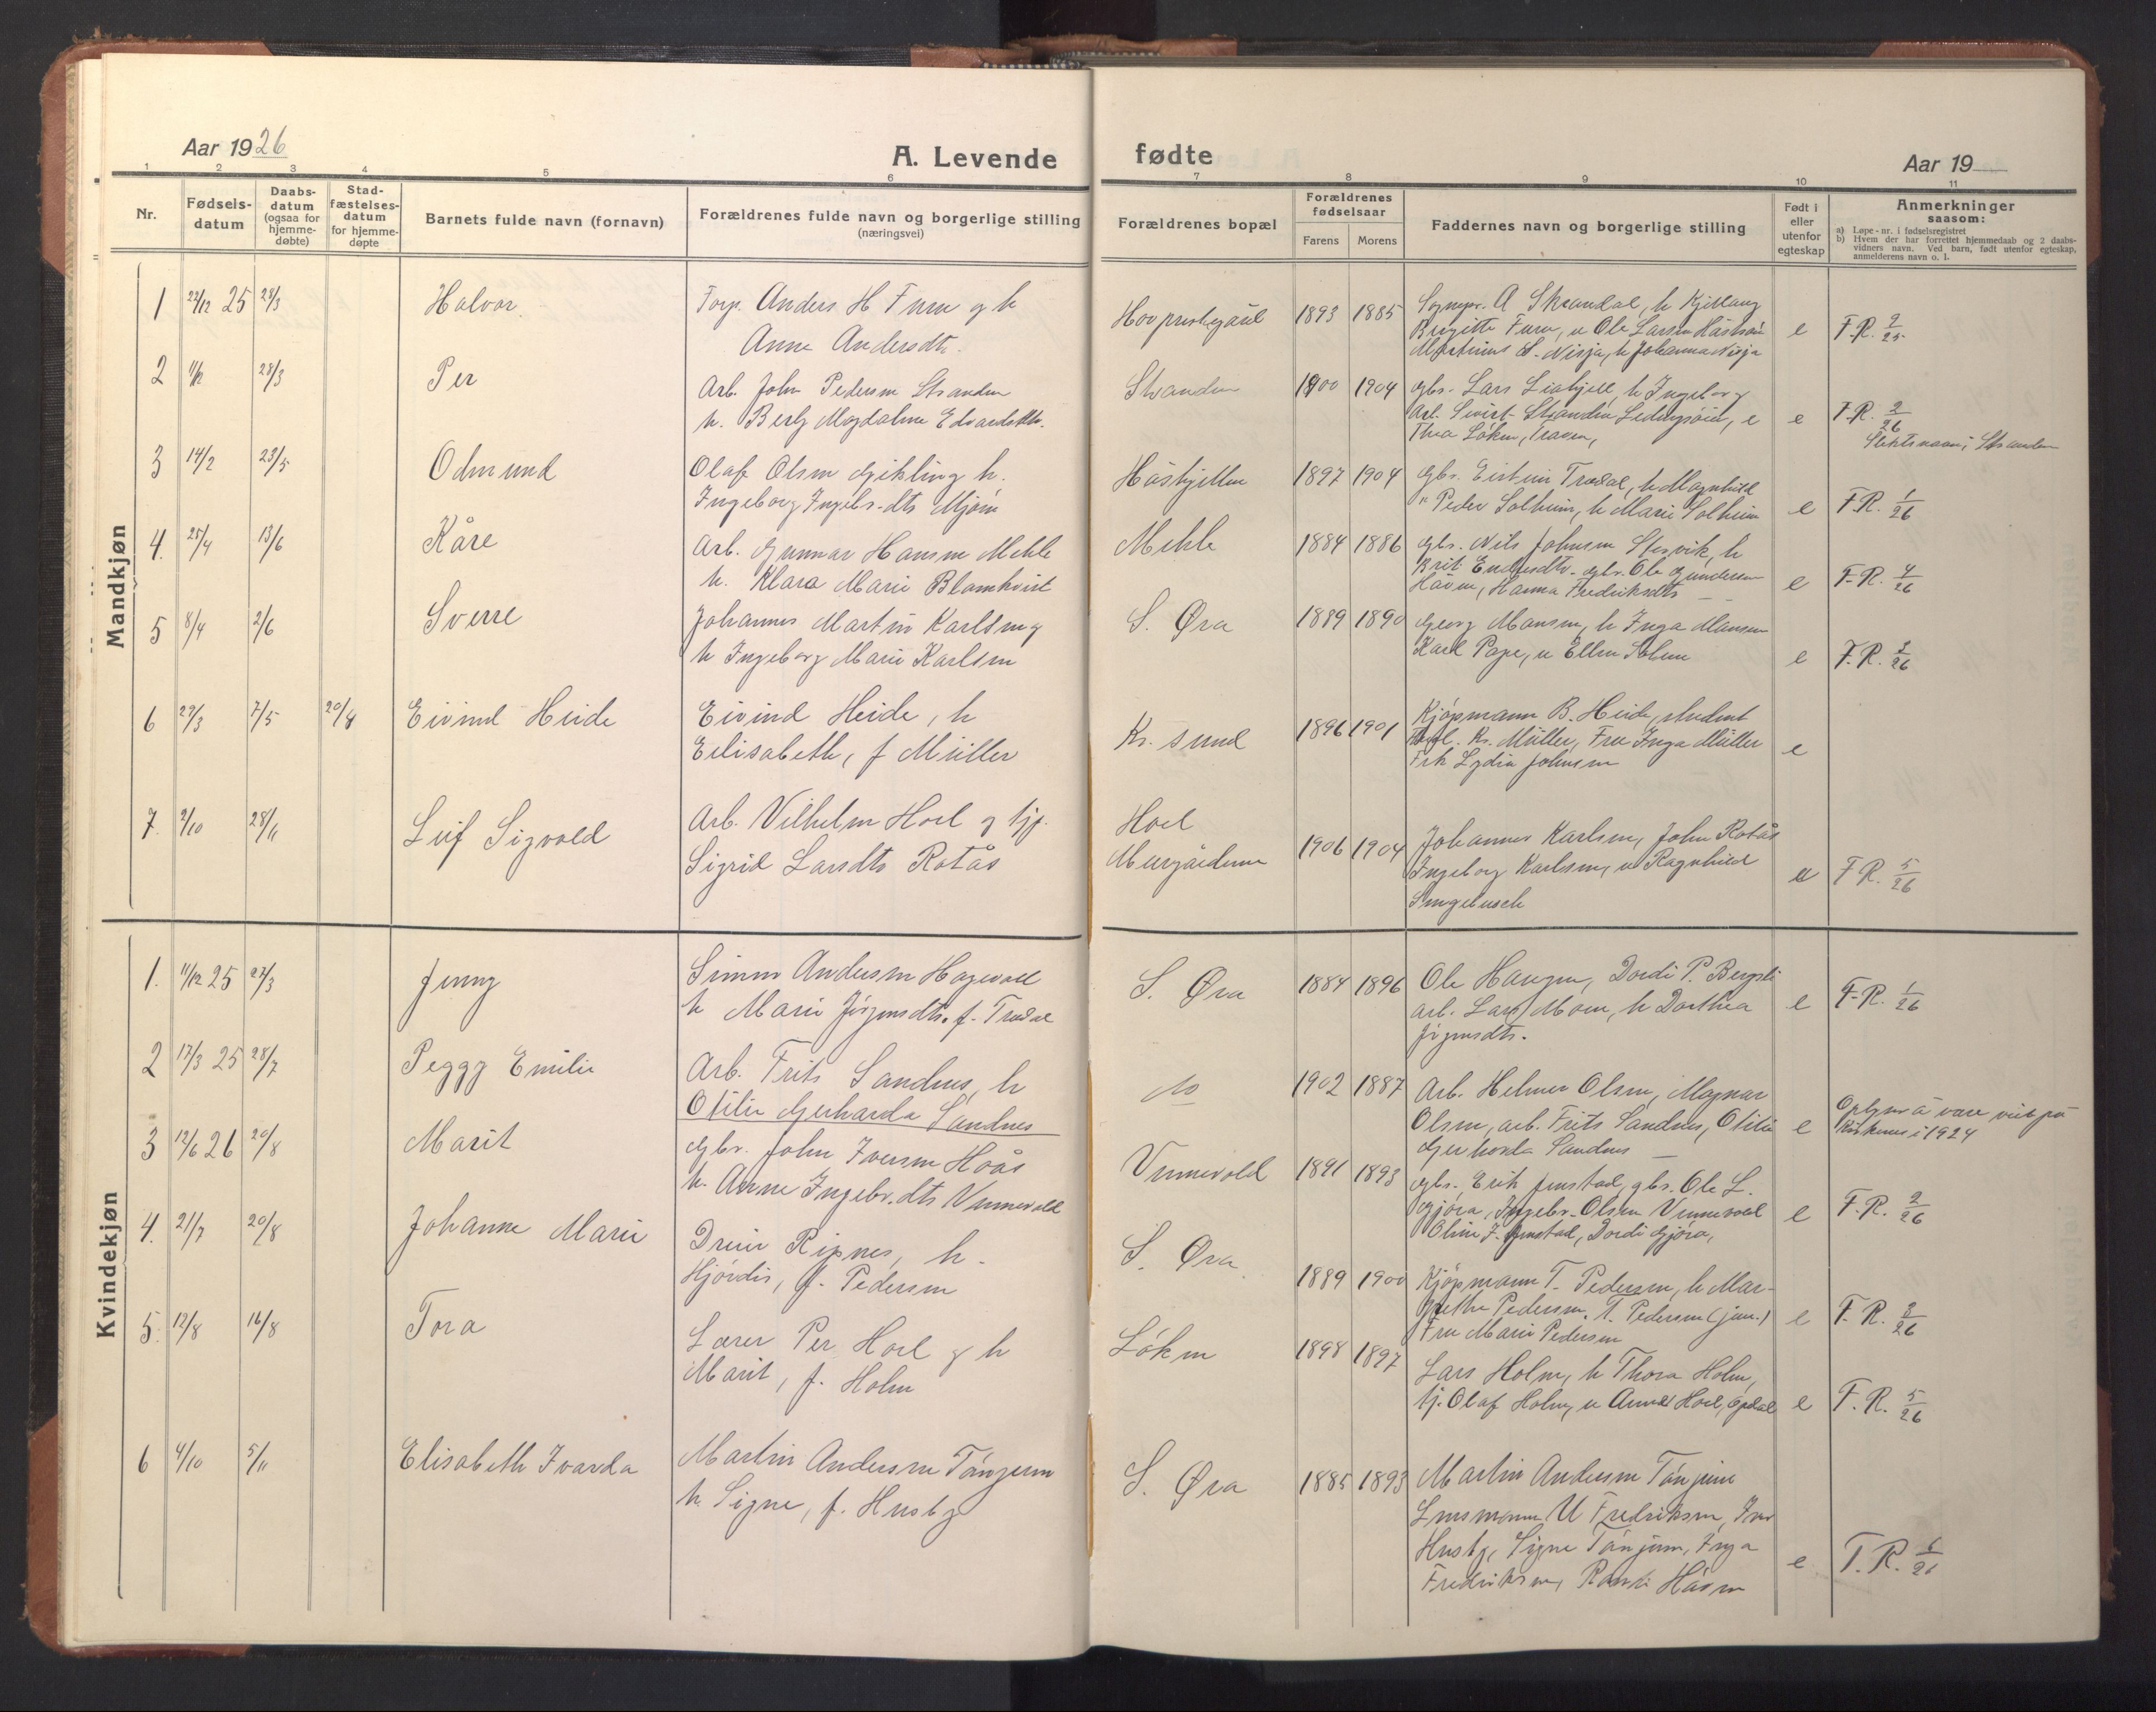 Aar 1926
A. Levende
fødte
Aar 19
1 2 3 4 5 6 7 8 9 10 11
Nr.
Fødsels-
datum
Daabs-
datum
(ogsaa for
hjemme-
døbte)
Stad-
fæstelses-
datum
for hjemme-
døpte
Barnets fulde navn (fornavn)
Forældrenes fulde navn og borgerlige stilling
(næringsvei)
Forældrenes bopæl
Forældrenes
fødselsaar
Farens
Morens
Faddernes navn og borgerlige stilling
Født i
eller
utenfor
egteskap
Anmerkninger
saasom:
a) Løpe-nr. i fødselsregistret
b) Hvem der har forrettet hjemmedaab og 2 daabs-
vidners navn. Ved barn, født utenfor egteskap,
anmelderens navn o. l.
Mandkjøn
1 22/12 25 28/3 Halvor
Forp. Anders H Furu og h
Anne Andersdtr.
Hov prestegård 1893 1885
Sognepr. A
Brigitte Furu, u Ole Larsen
h Johanna Nisja
e F.R. 7/25
2 28/3 Per
Arb. John Pedersen Stranden
h. Magdalene Edvardsdtr.
Stranden 1900 1904
gbr. Lars h Ingeborg
Arb. Stranden
Thea Løken,
e F.R. 2/26
Stranden
3 14/2 23/5 Odmund
Olaf Olsen Gikling h.
Ingeborg Ingebr.dts Mjøen
Håskjellen 1897 1904
gbr. Trædal, h Magnhild
" Peder Solheim, h Marie Solheim
e F.R. 1/26
4. 25/4 13/6 Kåre
Arb. Gunnar Hansen Mehle
h. Klara Marie Blomkvist
Mehle 1884 1886
gbr. Nils Johnsen h
Brit gbr. Ole Gundersen
Håven, Hanna Fredriksdts
e F.R. 4/26
5 8/4 2/6 Sverre
Johannes Martin Karlsen og
h Ingeborg Marie Karlsen
S. Øra 1889 1890
Georg Monsen, h Inga Monsen
Karl Pape, u Ellen
e F.R. 3/26
6 29/3 7/5 20/8 Eivind Heide
Eivind Heide, h
Elisabeth, f Müller
Kr. sund 1896 1901
Kjøpmann B. Heide, student
Kr. Müller, Fru Inga Müller
Frk Lydia Johnsen
e
7. 2/10 28/11 Leif Sigvald
Arb. Vilhelm Hoel og
Sigrid Larsdts Rotås
Hoel
1906 1904
Johannes Karlsen, John Rotås
Ingeborg Karlsen, u Ragnhild
Smugebusch
F R. 5/26
Kvindekjøn
1. 11/12 25 27/3 Jenny
Simon Andersen Hagevoll
h Marie Jørgensdts. f. Trædal
S. Øra 1884 1896
Ole Haugen, Dordi P.
arb. Lars Moen, h Dorthea
Jørgensdts.
e F.R. 1/26
2 17/3 25 28/7 Peggy Emilie
Arb. Frits Sandnes, h
Otilie Gerharda Sandnes
do 1902 1887
Arb. Helmer Olsen, Magnar
Olsen, arb. Frits Sandnes, Otilie
Gerharda Sandnes
e å være viet på
Kirkenes i 1924
3 12/6 26 20/8 Marit
gbr. John Iversen Hoås
h. Anne Ingebr.dts Vinnevold
Vinnevold 1891 1893
gbr. Erik Jenstad, gbr. Ole L.
Gjøra, Ingebr. Olsen Vinnevold
Oline J. Jenstad, Dordi Gjøra,
e F.R. 2/26
4. 21/7 20/8 Johanne Marie
Ripnes, h.
Hjørdis, f. Pedersen
S. Øra 1889 1900
Kjøpmann T. Pedersen, h Mar-
grethe Pedersen, T. Pedersen (jun.)
Fru Marie Pedersen
e F.R. 3/26
5. 12/8 16/8 Tora
Lærer Per Hoel og h
Marit, f. Holm
Løken 1898 1897
Lars Holm, h Thora Holm,
Olaf Holm, u Hoel, Opdal
e F.R. 5/26
6 4/10 5/11 Elisabeth Ivarda
Martin Andersen Tången
h. Signe, f. Husby
S. Øra 1885 1893
Martin Andersen
Lensmann U Fredriksen,
Husby, Signe Inga
Fredriksen, Håven
e F.R. 6/26